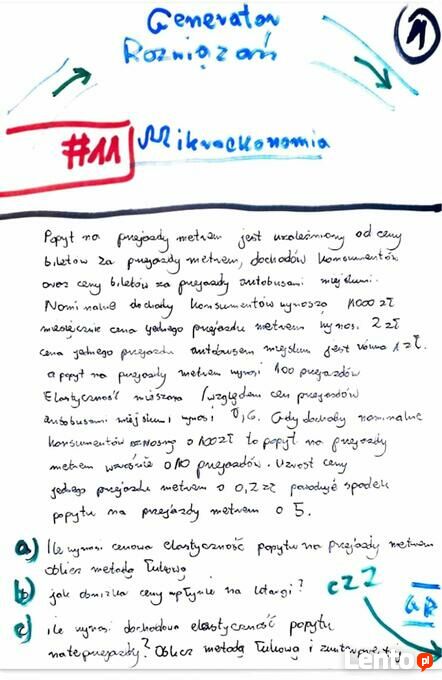 Generator
Rozwiązań
1
#11
Mikroekonomia
Popyt na przejazdy metrem jest uzależniony od ceny
biletów za przejazdy metrem, dochodów konsumentów
oraz ceny biletów za przejazdy autobusami miejskimi.
Nominalne dochody konsumentów wynoszą 1000 zł
miesięcznie cena jednego przejazdu metrem wynos. 2 zł
cena jednego przejazdu autobusem miejskim jest równa 1 zł.
a popyt na przejazdy metrem wynosi 100 przejazdów
Elastyczność mieszana /względem cen przejazdów
autobusami miejskimi wynosi 0,6. Gdy dochody nominalne
konsumentów wzrosną o 100 zł to popyt na przejazdy
metrem wzrośnie o 10 przejazdów. Wzrost ceny
jednego przejazdu metrem o 0,2 zł powoduje spadek
popytu na przejazdy metrem o 5.
a) Ile wynosi cenowa elastyczność popytu na przejazdy metrem
Oblicz metodą łukową
b) jak obniżka ceny wpłynie na utargi?
c) ile wynosi dochodowa elastyczność popytu
na te przejazdy? Oblicz metodą łukową i
cz 2
Lento.pl